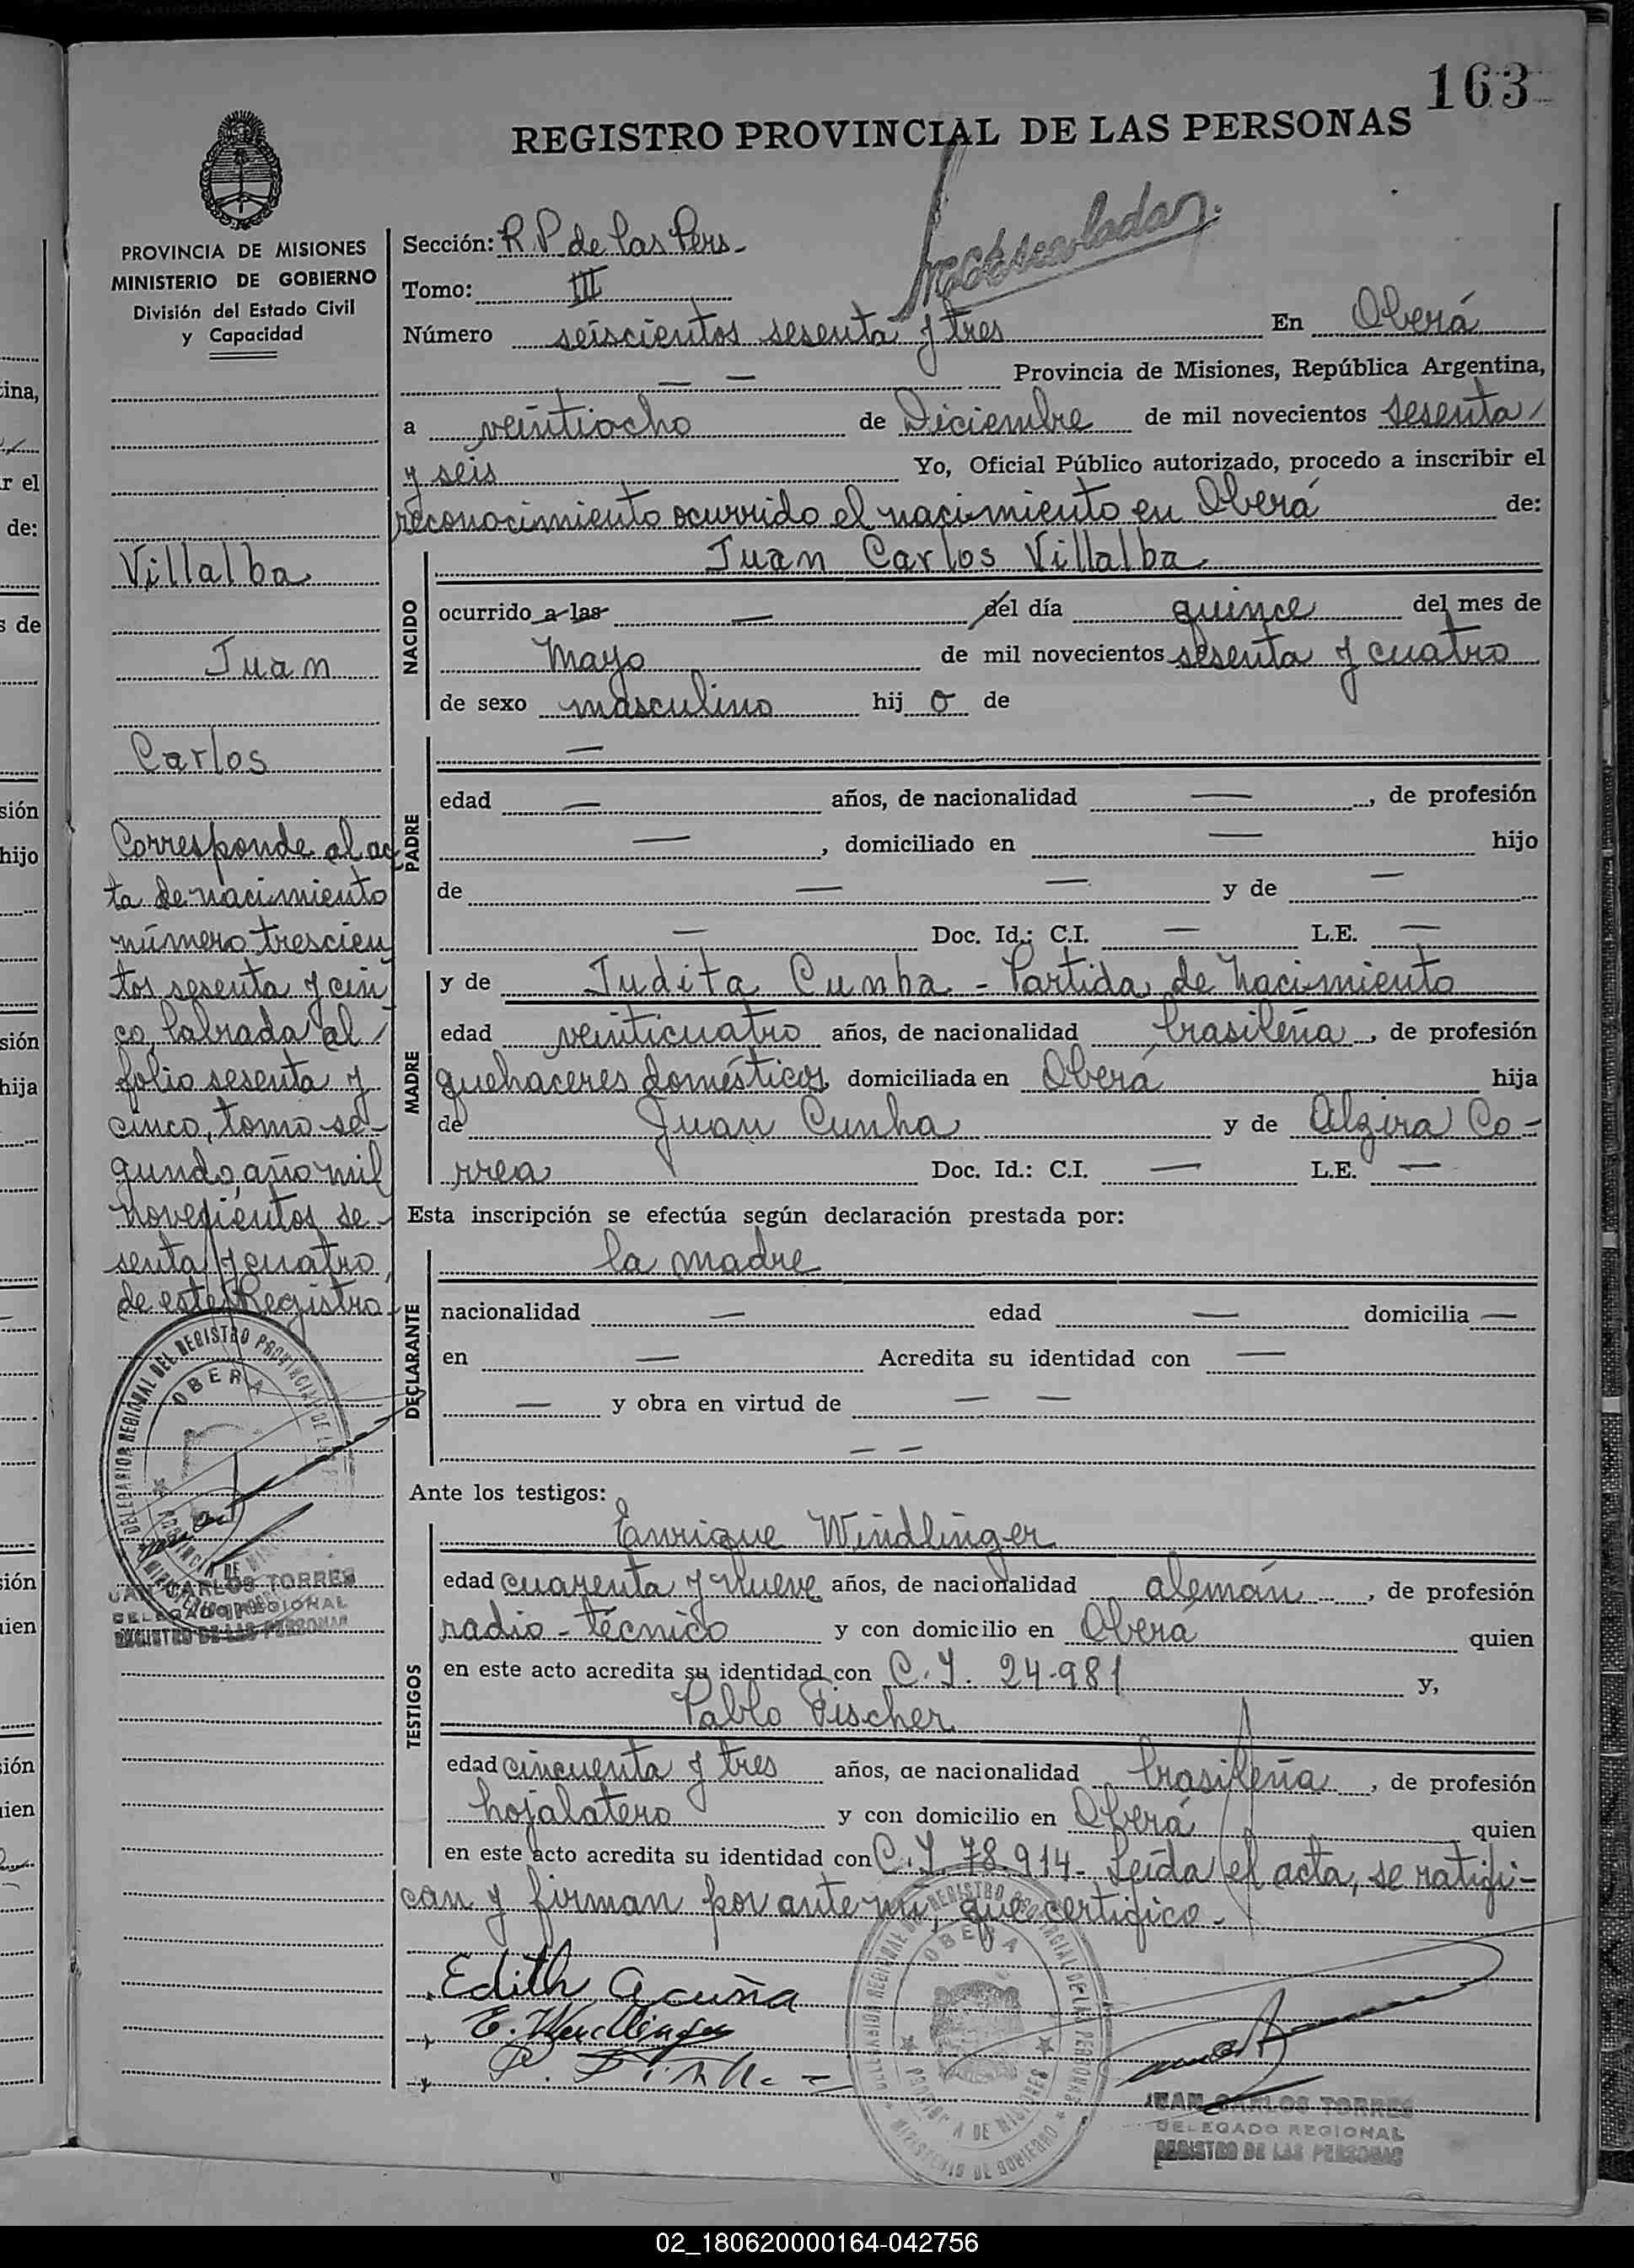 163
REGISTRO PROVINCIAL DE LAS PERSONAS
PROVINCIA DE MISIONES
MINISTERIO DE GOBIERNO
División del Estado Civil
y Capacidad
Villalba
Juan
Carlos
Corresponde al ac
ta de nacimiento
número trescien
tos sesenta y cin
co, labrada al
folio sesenta y
cinco, tomo se-
gundo, año mil
novecientos se-
senta y cuatro,
de este Registro.
DELEGACION REGIONAL DEL REGISTRO PROVINCIAL DE LAS
OBERA
JUAN CARLOS TORRES
DELEGADO REGIONAL
REGISTRO DE LAS PERSONAS
Sección: R.P de las Pers-
Tomo: III
Número seiscientos sesenta y tres En Oberá
— — Provincia de Misiones, República Argentina,
a veintiocho de Diciembre de mil novecientos sesenta
y seis Yo, Oficial Público autorizado, procedo a inscribir el
reconocimiento ocurrido el nacimiento en Oberá de:
NACIDO
Juan Carlos Villalba
ocurrido a las — del día quince del mes de
Mayo de mil novecientos sesenta y cuatro
de sexo masculino hij o de
PADRE
—
edad — años, de nacionalidad —, de profesión
—, domiciliado en — hijo
de — — y de —
— Doc. Id.: C.I. — L.E. —
MADRE
y de Judita Cunha - Partida de Nacimiento
edad veinticuatro años, de nacionalidad brasileña, de profesión
quehaceres domésticos domiciliada en Oberá hija
de Juan Cunha y de Alzira Co-
rrea Doc. Id.: C.I. — L.E. —
Esta inscripción se efectúa según declaración prestada por:
DECLARANTE
la madre
nacionalidad — edad — domicilia —
en — Acredita su identidad con —
— y obra en virtud de — —
— —
Ante los testigos:
TESTIGOS
Enrique Windlinger
edad cuarenta y nueve años, de nacionalidad alemán, de profesión
radio-técnico y con domicilio en Oberá quien
en este acto acredita su identidad con C.I. 24.981 y,
Pablo Fischer
edad cincuenta y tres años, de nacionalidad brasileña, de profesión
hojalatero y con domicilio en Oberá quien
en este acto acredita su identidad con C.I 78.914- Leída el acta, se ratifi-
can y firman por ante mí, que certifico.-
Edith Acuña
OBERA
PROVINCIA DE MISIONES
MINISTERIO DE GOBIERNO
JUAN CARLOS TORRES
DELEGADO REGIONAL
REGISTRO DE LAS PERSONAS
ina,
r el
de:
s de
sión
hijo
sión
hija
sión
uien
sión
uien
02_180620000164-042756